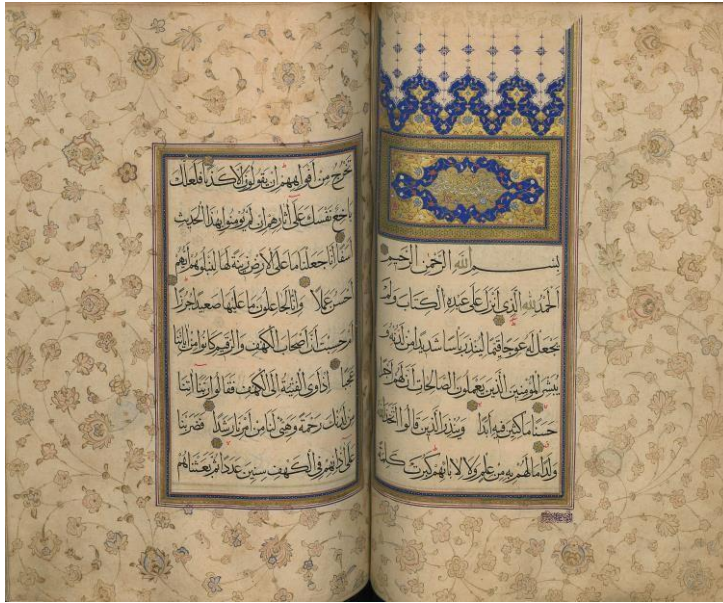 بسم الله الرحمن الرحيم
الحمد لله الذي أنزل على عبده الكتاب ولم
يجعل له عوجا قيما لينذر بأسا شديدا من لدنه و
يبشر المؤمنين الذين يعملون الصالحات أن لهم أجرا
حسنا ماكثين فيه أبدا وينذر الذين قالوا اتخذ الله
ولدا ما لهم به من علم ولا لابائهم كبرت كلمة
تخرج من أفواههم إن يقولون إلا كذبا فلعلك
باخع نفسك على آثارهم إن لم يؤمنوا بهذا الحديث
أسفا إنا جعلنا ما على الأرض زينة لها لنبلوهم أيهم
أحسن عملا وإنا لجاعلون ما عليها صعيدا جرزا
أم حسبت أن أصحاب الكهف والرقيم كانوا من آياتنا
عجبا إذ أوى الفتية إلى الكهف فقالوا ربنا آتنا
من لدنك رحمة وهيئ لنا من أمرنا رشدا فضربنا
على آذانهم في الكهف سنين عددا ثم بعثناهم